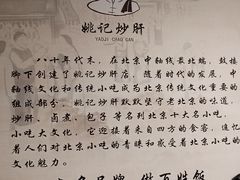 姚记炒肝
YAOJI CHAO GAN
八十年代末，在北京中轴线最北端，鼓楼
脚下创建了姚记炒肝店，随着时代的发展，中
轴线文化和传统小吃成为北京传统文化重要的
组成部分，姚记炒肝默默坚守老北京的味道，
炒肝、卤煮、包子等名列北京十大名小吃，
小吃大文化，它迎接着来自四方的食客，追忆
着人们对北京小吃的青睐和感受着北京小吃的
文化魅力。
做百姓饭